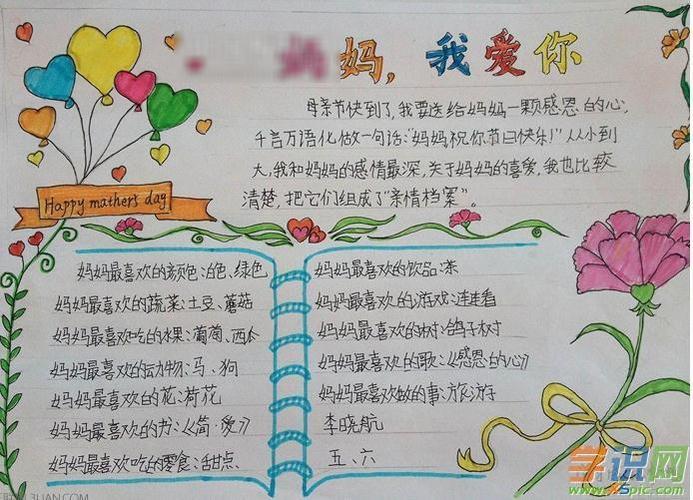 妈妈，我爱你
母亲节快到了，我要送给妈妈一颗感恩的心，
千言万语化做一句话："妈妈祝你节日快乐！"从小到
大，我和妈妈的感情最深，关于妈妈的喜爱，我也比较
清楚，把它们组成了"亲情档案"。
Happy mather's day
妈妈最喜欢的颜色：白色、绿色
妈妈最喜欢的蔬菜：土豆、蘑菇
妈妈最喜欢吃的水果：葡萄、西瓜
妈妈最喜欢的动物：马、狗
妈妈最喜欢的花：荷花
妈妈最喜欢的书：《简·爱》
妈妈最喜欢吃的零食：甜点
妈妈最喜欢的饮品：茶
妈妈最喜欢的游戏：连连看
妈妈最喜欢的树：鸽子树
妈妈最喜欢的歌：《感恩的心》
妈妈最喜欢做的事：旅游
李晓航
五、六
学识网